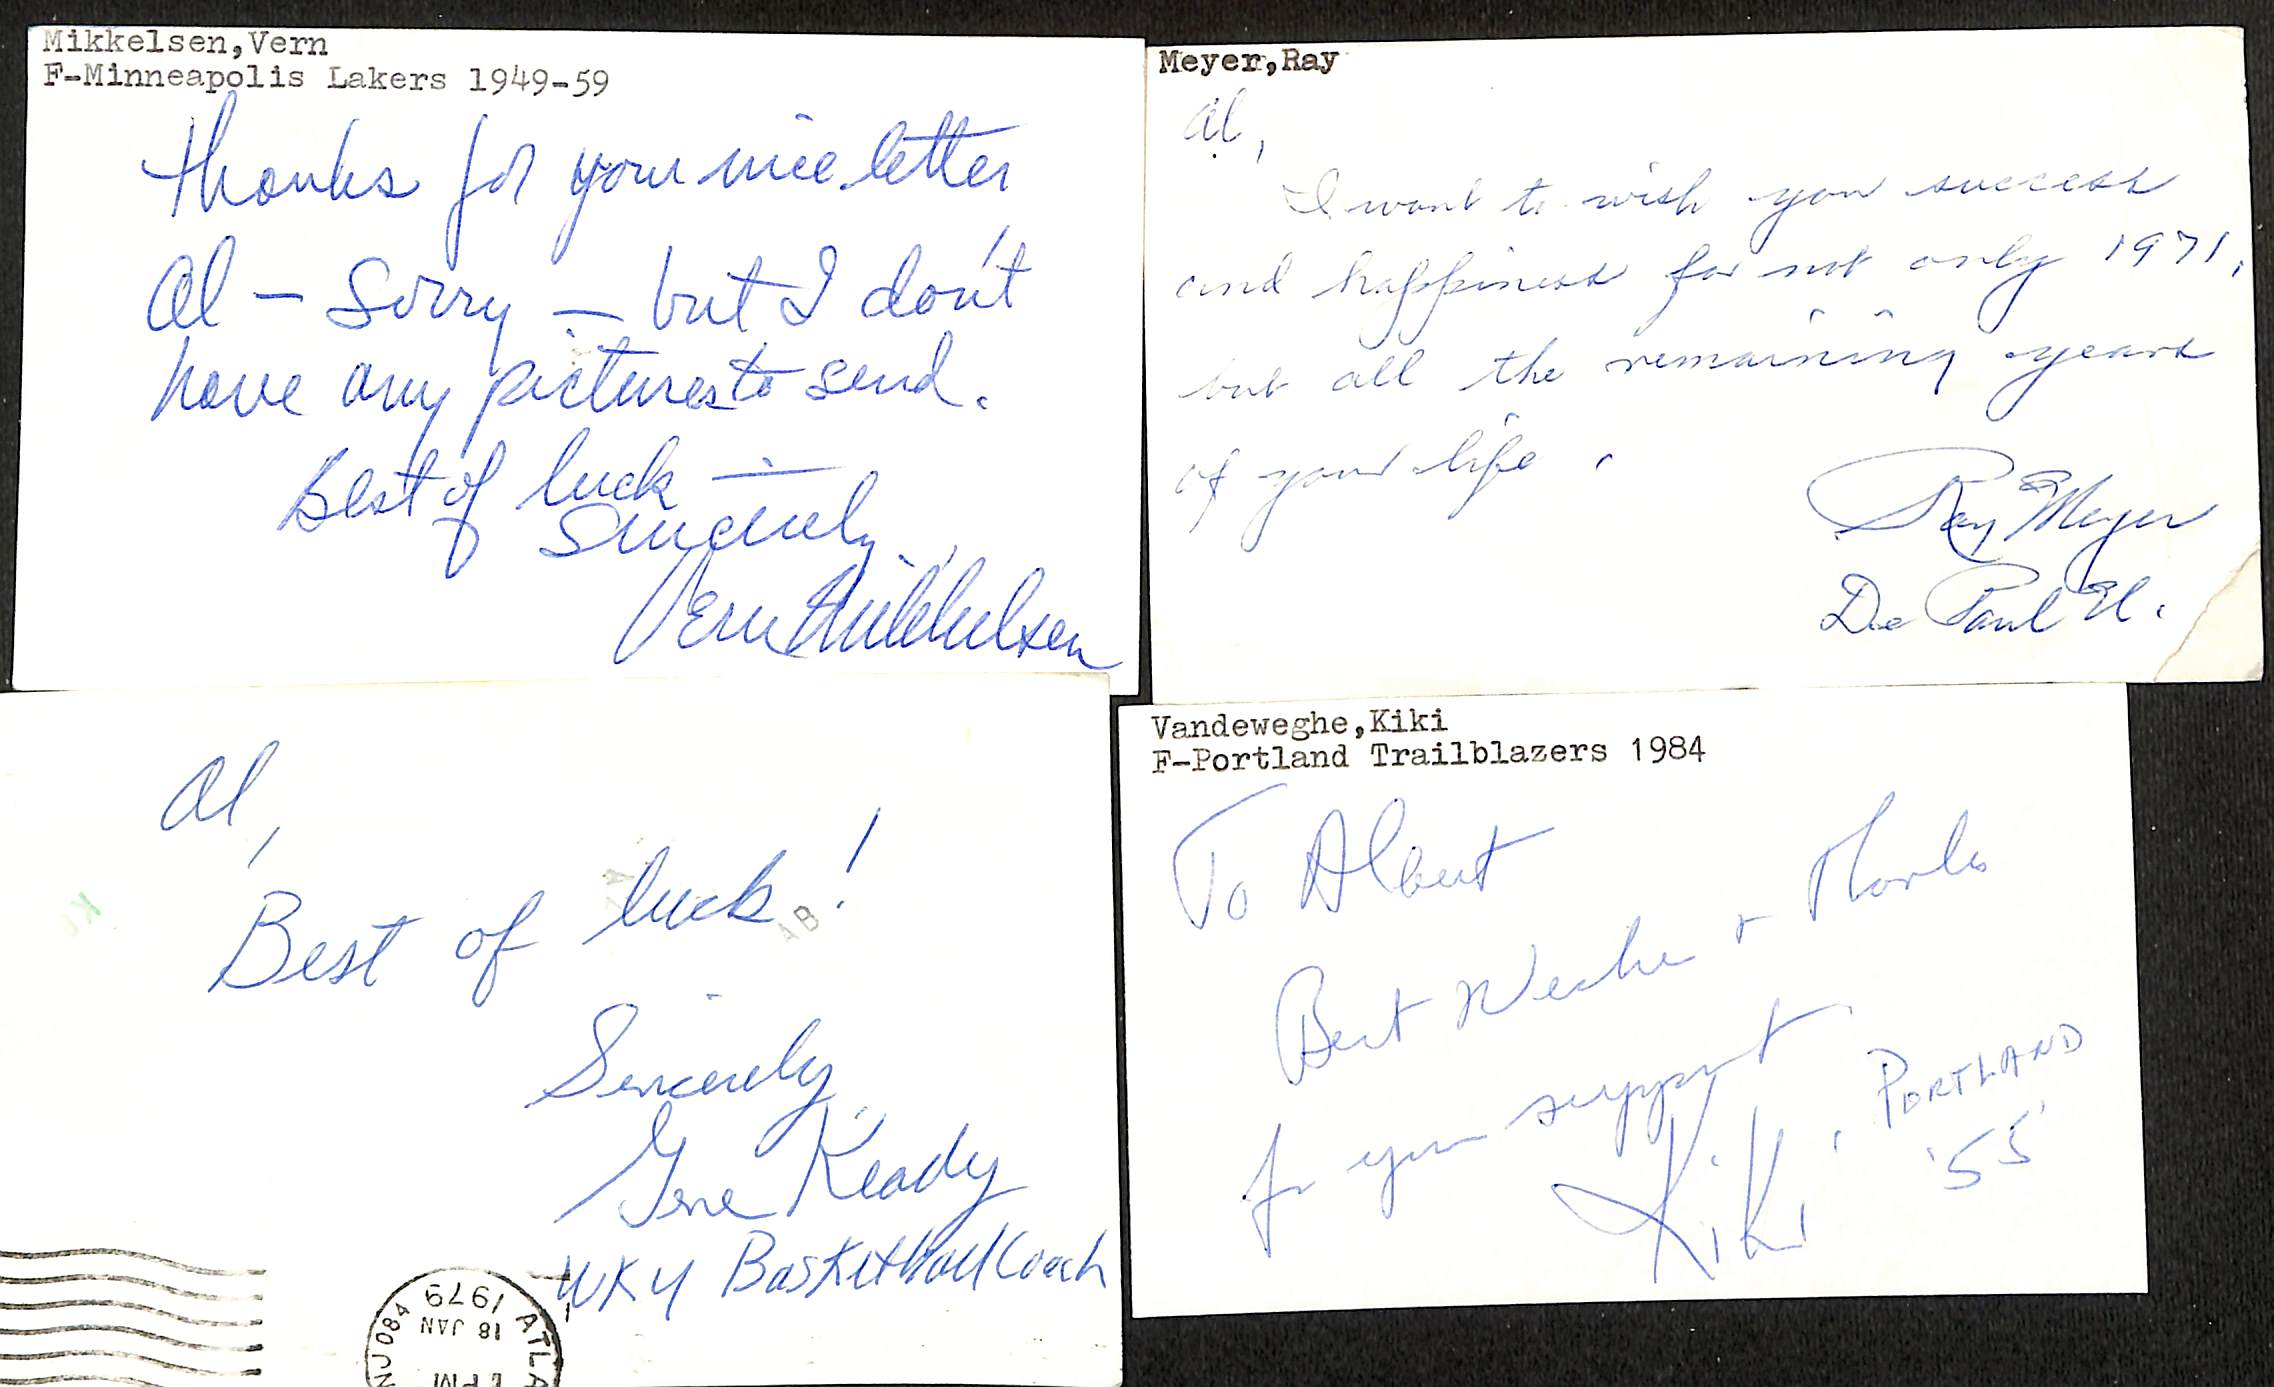 Mikkelsen,Vern
F-Minneapolis Lakers 1949-59
Thanks for your nice letter
Al - Sorry - but I don't
have any pictures to send.
Best of luck -
Sincerely,
Vern Mikkelsen
Meyer,Ray
Al,
I want to wish you success
and happiness for not only 1971,
but all the remaining years
of your life.
Ray Meyer
De Paul U.
Al,
Best of luck!
AB
Sincerely,
Gene Keady
WKU Basketball Coach
1979
18 JAN
PM
NJ 084
ATLA
Vandeweghe,Kiki
F-Portland Trailblazers 1984
To Albert
Best Wishes + Thanks
for your support
Kiki, PORTLAND
'55'